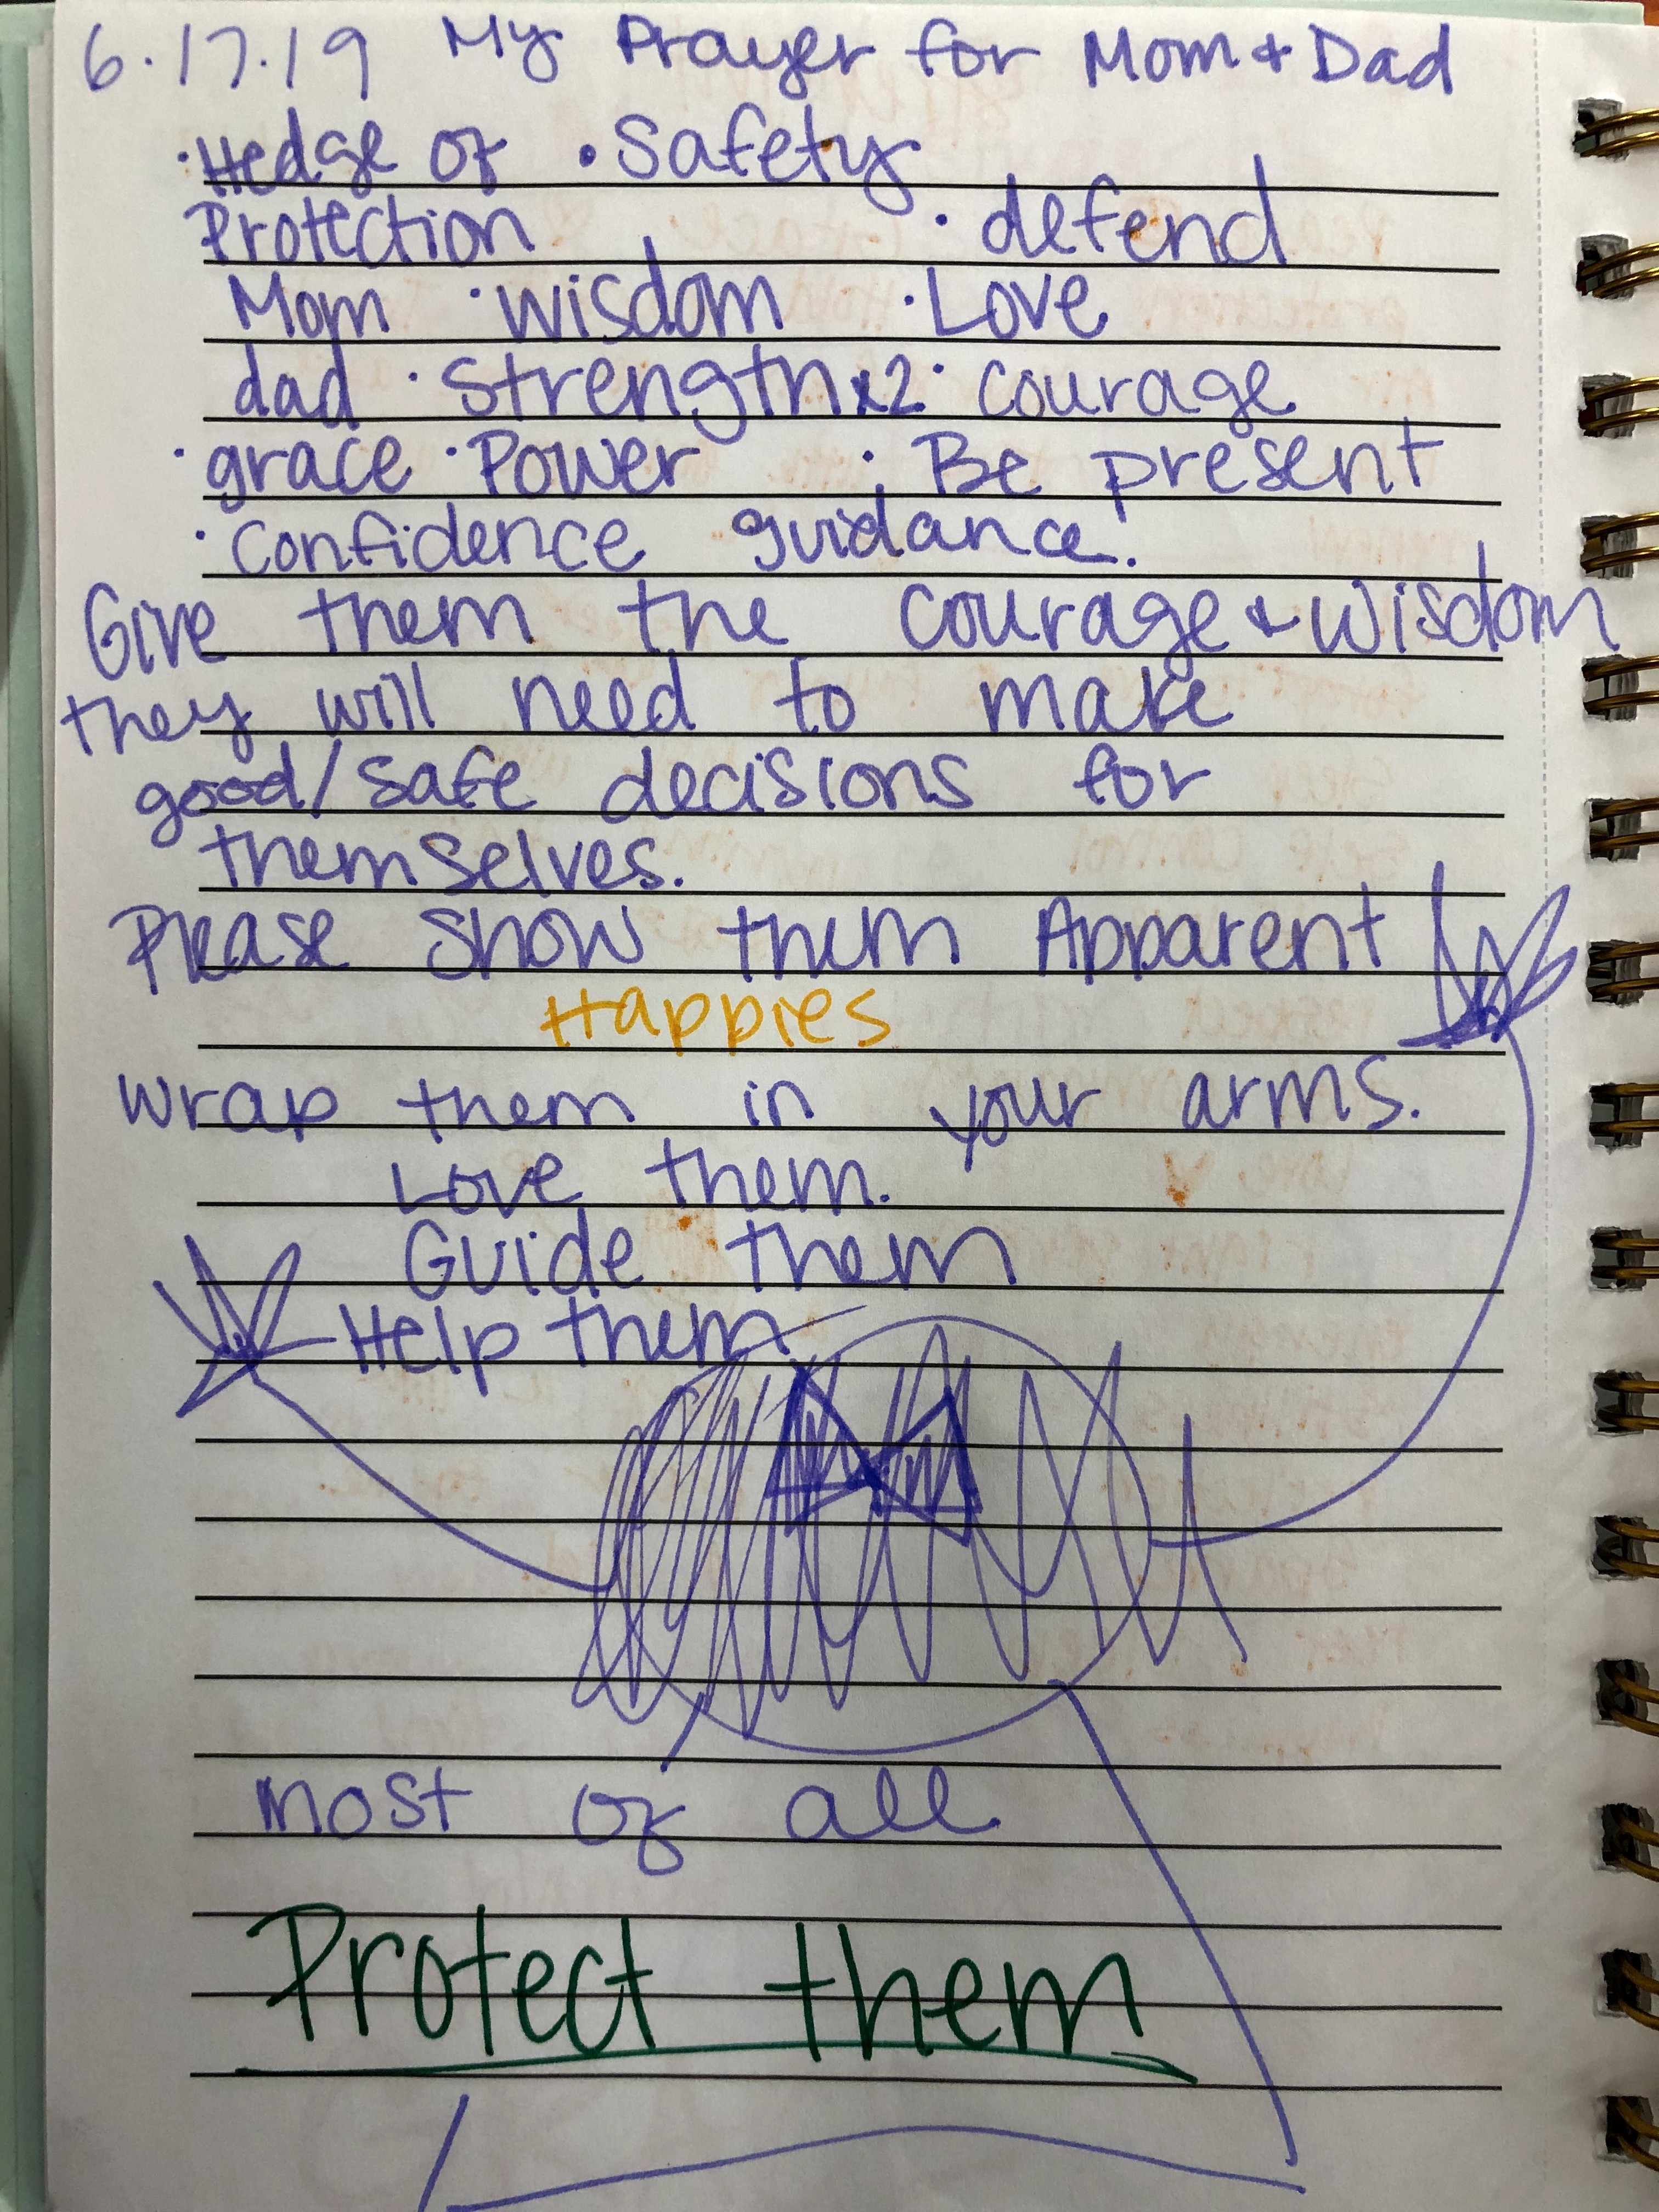 6.17.19 My Prayer for Mom + Dad
·Hedge of ·Safety
Protection ·defend
Mom ·wisdom ·Love
dad ·Strength x2 ·courage
·grace ·Power ·Be present
·Confidence guidance!
Give them the courage + wisdom
they will need to make
good/safe decisions for
themselves.
Please show them Apparent
Happies
wrap them in your arms.
Love them.
Guide them
Help them.
most of all
Protect them